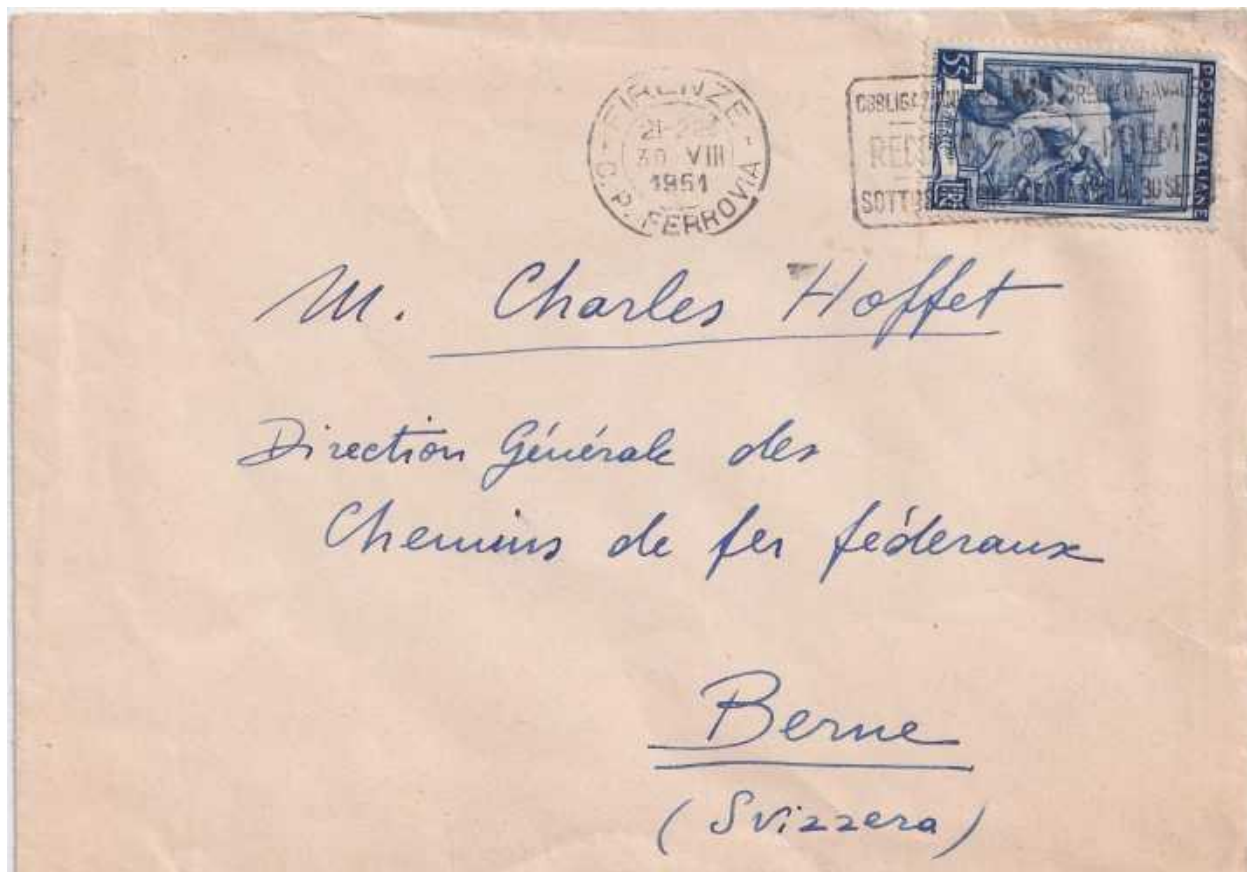 FIRENZE
30 VIII
1951
C. P. FERROVIA
POSTE ITALIANE
55
LIRE
M. Charles Hoffet
Direction Générale des
Chemins de fer féderaux
Berne
(Svizzera)